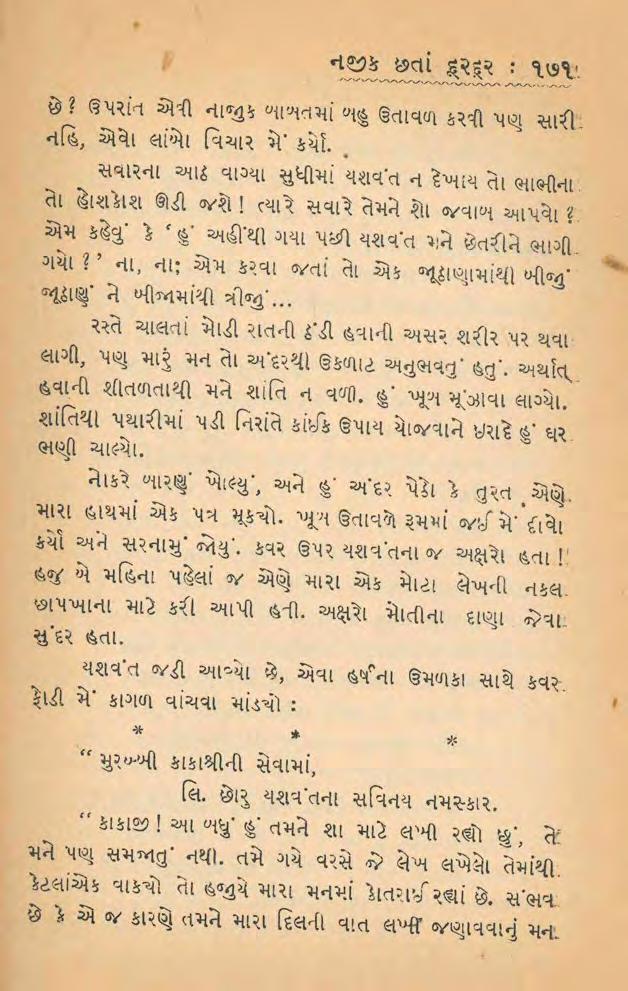 નજીક છતાં દૂરદૂર : ૧૭૧
છે? ઉપરાંત એવી નાજુક બાબતમાં બહુ ઉતાવળ કરવી પણ સારી
નહિ, એવો લાંબો વિચાર મેં કર્યો.
સવારના આઠ વાગ્યા સુધીમાં યશવંત ન દેખાય તો ભાભીના
તો હોશકોશ ઊડી જશે! ત્યારે સવારે તેમને શો જવાબ આપવો?
એમ કહેવું કે ‘હું અહીંથી ગયા પછી યશવંત મને છેતરીને ભાગી
ગયો?’ ના, ના; એમ કરવા જતાં તો એક જૂઠાણામાંથી બીજું
જૂઠાણું ને બીજામાંથી ત્રીજું...
રસ્તે ચાલતાં મોડી રાતની ઠંડી હવાની અસર શરીર પર થવા
લાગી, પણ મારું મન તો અંદરથી ઉકળાટ અનુભવતું હતું. અર્થાત્
હવાની શીતળતાથી મને શાંતિ ન વળી. હું ખૂબ મૂંઝાવા લાગ્યો.
શાંતિથી પથારીમાં પડી નિરાંતે કાંઈક ઉપાય યોજવાને ઇરાદે હું ઘર
ભણી ચાલ્યો.
નોકરે બારણું ખોલ્યું, અને હું અંદર પેઠો કે તુરત એણે
મારા હાથમાં એક પત્ર મૂક્યો. ખૂબ ઉતાવળે રૂમમાં જઈ મેં દીવો
કર્યો અને સરનામું જોયું. કવર ઉપર યશવંતના જ અક્ષરો હતા!
હજુ બે મહિના પહેલાં જ એણે મારા એક મોટા લેખની નકલ
છાપખાના માટે કરી આપી હતી. અક્ષરો મોતીના દાણા જેવા
સુંદર હતા.
યશવંત જડી આવ્યો છે, એવા હર્ષના ઉમળકા સાથે કવર
ફોડી મેં કાગળ વાંચવા માંડ્યો :
* * *
“ મુરબ્બી કાકાશ્રીની સેવામાં,
લિ. છોરુ યશવંતના સવિનય નમસ્કાર.
“ કાકાજી! આ બધું હું તમને શા માટે લખી રહ્યો છું, તે
મને પણ સમજાતું નથી. તમે ગયે વરસે જે લેખ લખેલો તેમાંથી
કેટલાંએક વાક્યો તો હજીયે મારા મનમાં કોતરાઈ રહ્યાં છે. સંભવ
છે કે એ જ કારણે તમને મારા દિલની વાત લખી જણાવવાનું મન